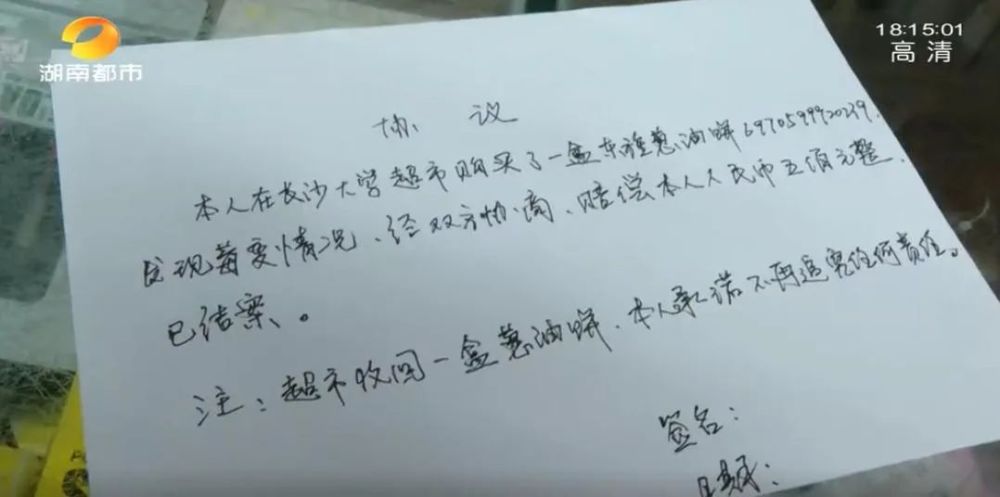 湖南都市
18:15:01
高清
协议
本人在长沙大学超市购买了一盒东雅葱油饼6970599920239.
发现莓变情况、经双方协商、赔偿本人人民币五佰元整.
已结案。
注:超市收回一盒葱油饼.本人承诺不再追究任何责任。
签名:
日期: